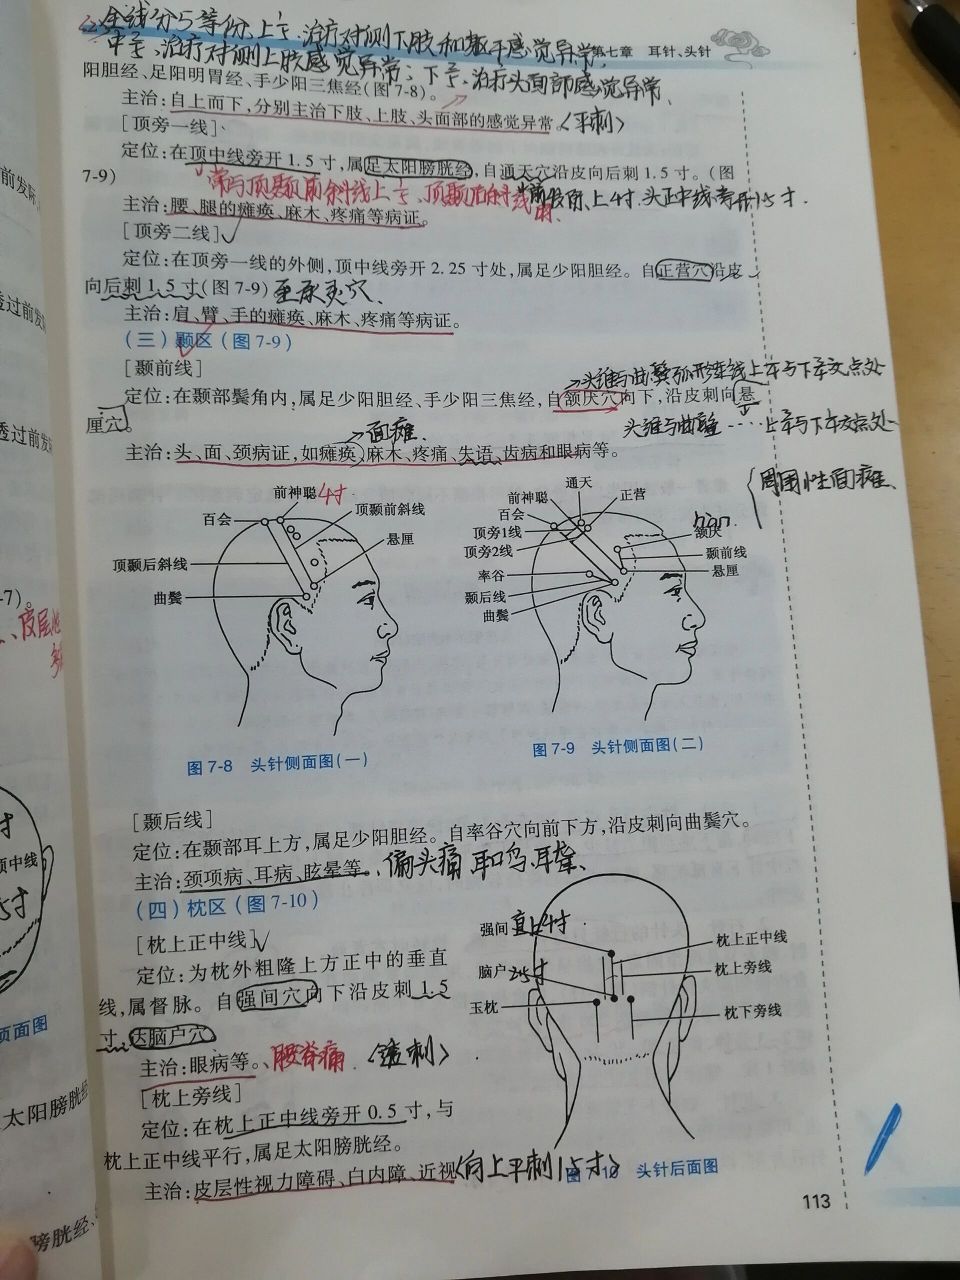 全线分5等份,上1/5治疗对侧下肢和躯干感觉异常,
第七章 耳针、头针
中2/5治疗对侧上肢感觉异常;下2/5治疗头面部感觉异常、
阳胆经、足阳明胃经、手少阳三焦经(图7-8)。
主治:自上而下,分别主治下肢、上肢、头面部的感觉异常。〈平刺〉
[顶旁一线]
定位:在顶中线旁开1.5寸,属足太阳膀胱经,自通天穴沿皮向后刺1.5寸。(图
7-9)
常与顶颞前斜线上1/5、顶颞后斜线
上4寸,头正中线旁开1.5寸.
主治:腰、腿的瘫痪、麻木、疼痛等病证。
[顶旁二线]
定位:在顶旁一线的外侧,顶中线旁开2.25寸处,属足少阳胆经。自正营穴沿皮
向后刺1.5寸(图7-9)至承灵穴、
主治:肩、臂、手的瘫痪、麻木、疼痛等病证。
(三)颞区(图7-9)
[颞前线]
→头维与曲鬓弧形连线上1/4与下3/4交点处
定位:在颞部鬓角内,属足少阳胆经、手少阳三焦经,自颔厌穴向下,沿皮刺向悬
厘穴。
头维与曲鬓……上3/4与下1/4交点处
→面瘫、
主治:头、面、颈病证,如瘫痪、麻木、疼痛、失语、齿病和眼病等。
周围性面瘫、
前神聪 4寸
百会
顶颞前斜线
悬厘
顶颞后斜线
曲鬓
通天
前神聪
正营
百会
顶旁1线
hàn
颔厌
顶旁2线
颞前线
率谷
悬厘
颞后线
曲鬓
图7-8 头针侧面图(一)
图7-9 头针侧面图(二)
[颞后线]
定位:在颞部耳上方,属足少阳胆经。自率谷穴向前下方,沿皮刺向曲鬓穴。
主治:颈项病、耳病、眩晕等。偏头痛、耳鸣、耳聋、
(四)枕区(图7-10)
[枕上正中线]
定位:为枕外粗隆上方正中的垂直
线,属督脉。自强间穴向下沿皮刺1.5
寸,达脑户穴。
主治:眼病等。、腰脊痛 〈透刺〉
[枕上旁线]
定位:在枕上正中线旁开0.5寸,与
枕上正中线平行,属足太阳膀胱经。
主治:皮层性视力障碍、白内障、近视〈向上平刺1.5寸〉
强间 直上4寸
枕上正中线
脑户 2.5寸
枕上旁线
玉枕
枕下旁线
头针后面图
113
前发际
透过前发际
透过前发
-7)。
、皮层性
寸
顶中线
.5寸
页面图
太阳膀胱经
膀胱经、